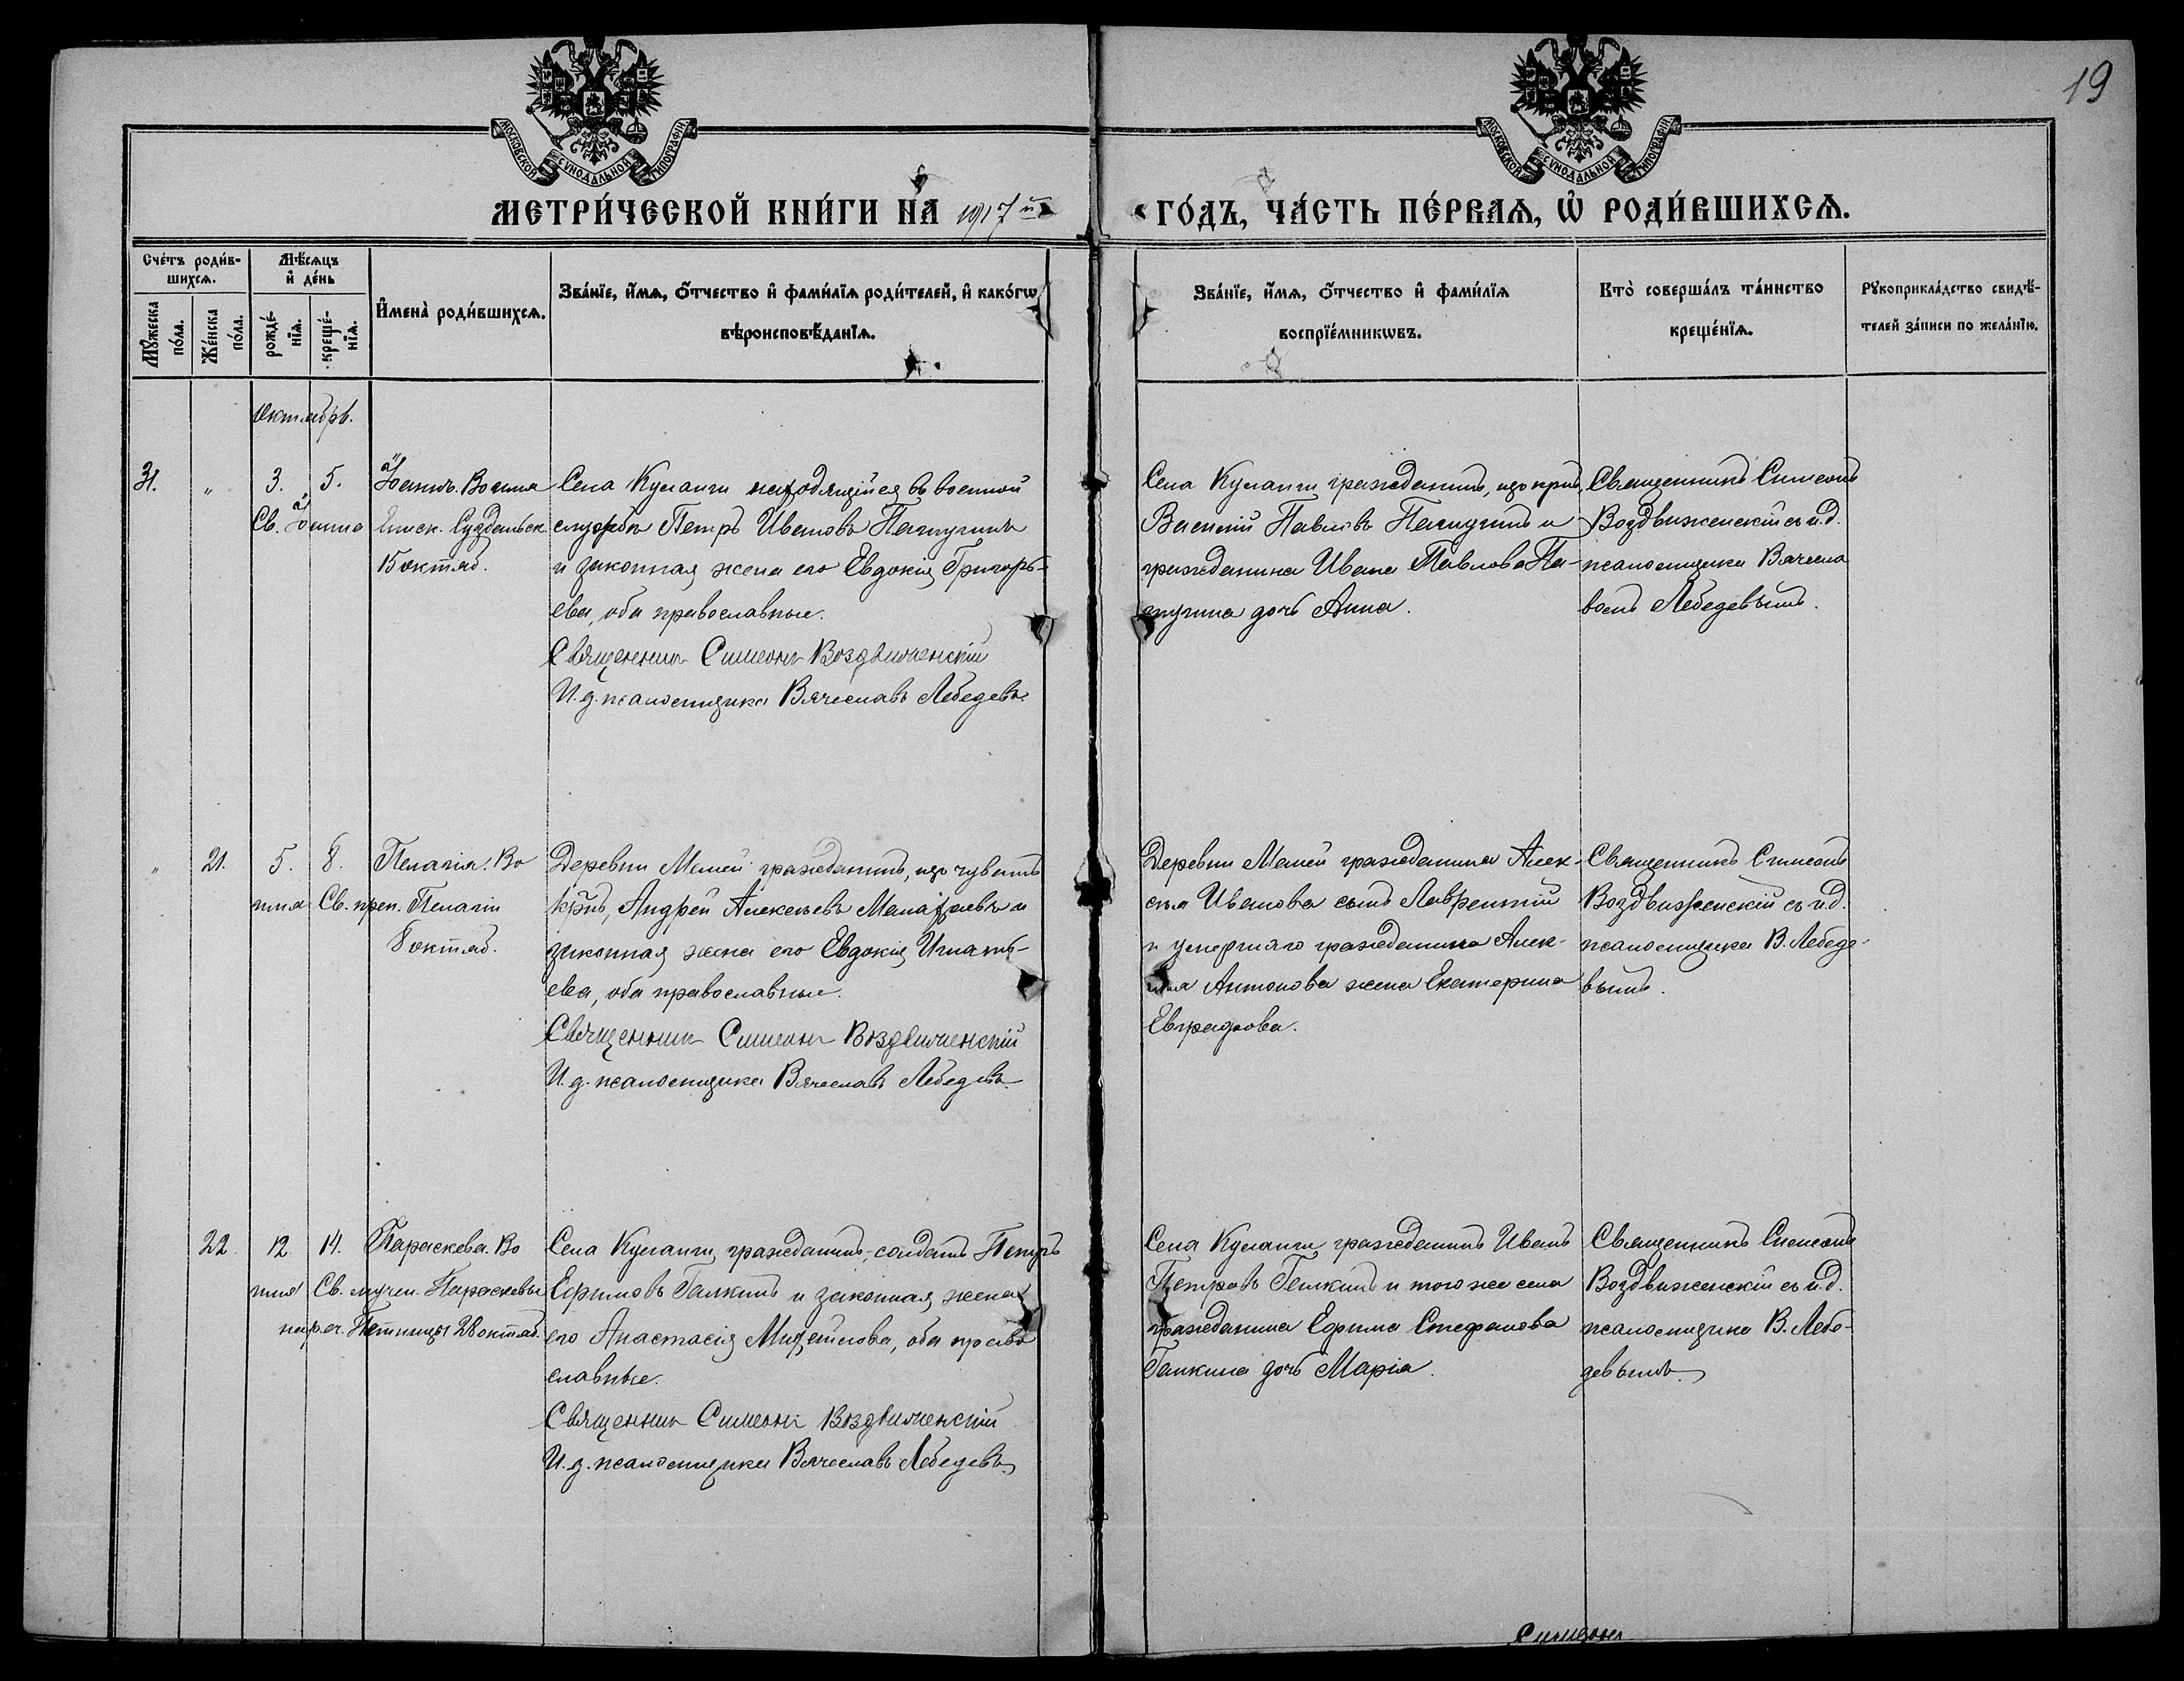 19
МОСКОВСКОЙ СУНОДАЛЬНОЙ ТИПОГРАФІИ
МОСКОВСКОЙ СУНОДАЛЬНОЙ ТИПОГРАФІИ
МЕТРИ́ЧЕСКОЙ КНИ́ГИ НА 1917й
ГО́ДЪ, ЧА́СТЬ ПЕ́РВАѦ, Ѡ РОДИ́ВШИХСѦ.
Сче́тъ роди́в-
шихсѧ.
Мѣ́сѧцъ
и҆ де́нь
Мꙋжеска
по́ла.
Же́нска
по́ла.
рожде́-
нїѧ.
креще́-
нїѧ.
И҆мена̀ роди́вшихсѧ.
Зва́нїе, и҆́мѧ, ѻ҆́тчество и҆ фами́лїѧ роди́телей, и҆ како́гѡ
вѣроисповѣ́данїѧ.
Зва́нїе, и҆́мѧ, ѻ҆́тчество и҆ фами́лїѧ
воспрїе́мникѡвъ.
Кто̀ соверша́лъ та́инство
креще́нїѧ.
Рꙋкоприкла́дство свидѣ́-
телей за́писи по жела́нїю.
Октябрь.
31. " 3. 5. Іоаннъ. Во имя
Св. Іоанна Еписк. Суздальск.
15 октяб.
Села Куланги находящійся въ военной
службѣ Петръ Ивановъ Пагиугинъ
и законная жена его Евдокія Григорь-
ева, оба православные.
Священник Симеонъ Воздвиженскій
И. д. псаломщика Вячеславъ Лебедевъ.
Села Куланги гражданинъ, изъ крест.
Василій Павловъ и
гражданина Ивана Павлова Па-
дочь Анна.
Священникъ Симеонъ
Воздвиженскій съ и.д.
псаломщика Вячесла
вомъ Лебедевымъ.
" 21. 5. 8. Пелагія. Во
имя Св. преп. Пелагіи
8 октяб.
Деревни Мамей гражданинъ, изъ чувашъ
крест, Андрей Алексѣевъ и
законная жена его Евдокія Игнать-
ева, оба православные.
Священник Симеонъ Воздвиженскій
И. д. псаломщика Вячеславъ Лебедевъ
Деревни Мамей гражданина Алек-
сѣя Иванова сынъ Лаврентій
и умершаго гражданина Алек-
сѣя Антонова жена Екатерина
Евграфова.
Священникъ Симеонъ
Воздвиженскій съ и.д.
псаломщика В. Лебеде-
вымъ.
22. 12. 14. Параскева. Во
имя Св. мучен. Параскевы
нареч. Пятницы 28 октяб.
Села Куланги, гражданинъ-солдатъ Петръ
Ефимовъ Галкинъ и законная жена
его Анастасія Михайлова, оба право
славные.
Священник Симеонъ Воздвиженскій
И. д. псаломщика Вячеславъ Лебедевъ
Села Куланги гражданинъ Иванъ
Петровъ Галкинъ и того же села
гражданина Ефима Стефанова
Галкина дочь Марія.
Священникъ Симеонъ
Воздвиженскій съ и.д.
псаломщика В. Лебе-
девымъ
Симеонъ